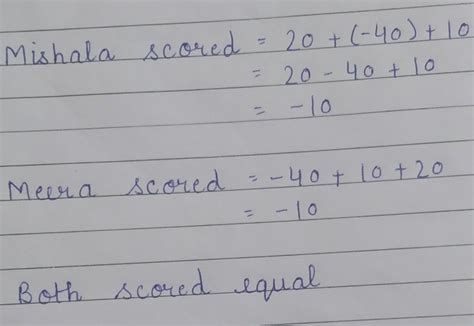 Mishala scored = 20 + (-40) + 10
= 20 - 40 + 10
= -10
Meera scored = -40 + 10 + 20
= -10
Both scored equal